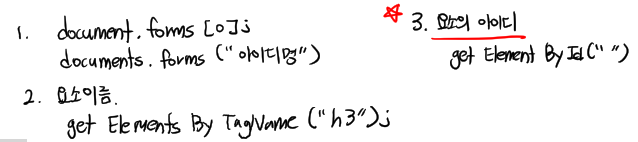 1. document.forms[0];
documents.forms("아이디명")
2. 요소이름.
get Elements By TagName ("h3");
3. 요소의 아이디
get Element By Id (" ")